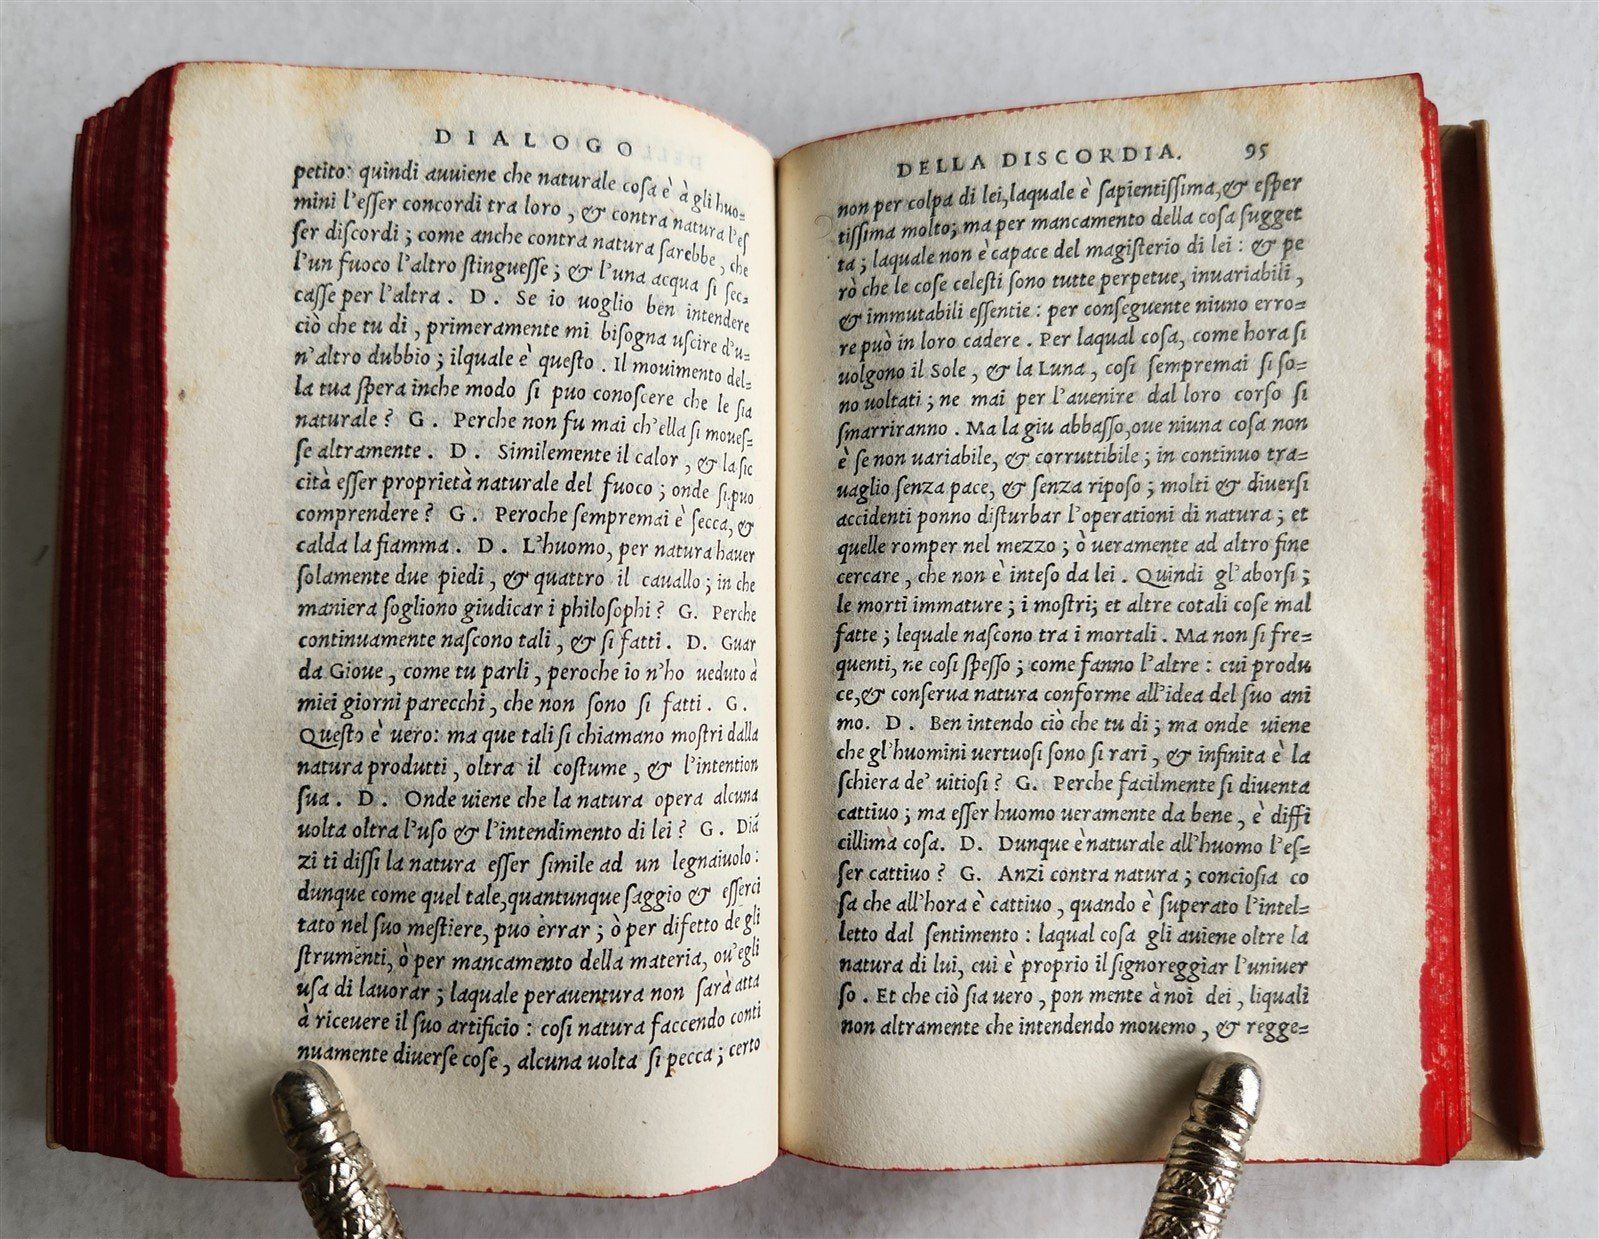 DIALOGO
petito: quindi auuiene che naturale cosa è à gli huo=
mini l'esser concordi tra loro, & contra natura l'es
ser discordi; come anche contra natura sarebbe, che
l'un fuoco l'altro stinguesse; & l'una acqua si sec=
casse per l'altra. D. Se io uoglio ben intendere
ciò che tu di, primeramente mi bisogna uscire d'u=
n'altro dubbio; ilquale è questo. Il mouimento del=
la tua spera inche modo si puo conoscere che le sia
naturale? G. Perche non fu mai ch'ella si moues=
se altramente. D. Similemente il calor, & la sic
cità esser proprietà naturale del fuoco; onde si puo
comprendere? G. Peroche sempremai è secca, &
calda la fiamma. D. L'huomo, per natura hauer
solamente due piedi, & quattro il cauallo; in che
maniera sogliono giudicar i philosophi? G. Perche
continuamente nascono tali, & si fatti. D. Guar
da Gioue, come tu parli, peroche io n'ho ueduto à
miei giorni parecchi, che non sono si fatti. G.
Questo è uero: ma que tali si chiamano mostri dalla
natura produtti, oltra il costume, & l'intention
sua. D. Onde uiene che la natura opera alcuna
uolta oltra l'uso & l'intendimento di lei? G. Diã
zi ti dissi la natura esser simile ad un legnaiuolo:
dunque come quel tale, quantunque saggio & esserci
tato nel suo mestiere, puo errar; ò per difetto de gli
strumenti, ò per mancamento della materia, ou'egli
usa di lauorar; laquale perauentura non sarà atta
à riceuere il suo artificio: cosi natura faccendo conti
nuamente diuerse cose, alcuna uolta si pecca; certo
DELLA DISCORDIA. 95
non per colpa di lei, laquale è sapientissima, & esper
tissima molto; ma per mancamento della cosa sugget
ta; laquale non è capace del magisterio di lei: & pe
rò che le cose celesti sono tutte perpetue, inuariabili,
& immutabili essentie: per conseguente niuno erro=
re può in loro cadere. Per laqual cosa, come hora si
uolgono il Sole, & la Luna, cosi sempremai si so=
no uoltati; ne mai per l'auenire dal loro corso si
smarriranno. Ma la giu abbasso, oue niuna cosa non
è se non uariabile, & corruttibile; in continuo tra=
uaglio senza pace, & senza riposo; molti & diuersi
accidenti ponno disturbar l'operationi di natura; et
quelle romper nel mezzo; ò ueramente ad altro fine
cercare, che non è inteso da lei. Quindi gl'aborsi;
le morti immature; i mostri; et altre cotali cose mal
fatte; lequale nascono tra i mortali. Ma non si fre=
quenti, ne cosi spesso; come fanno l'altre: cui produ
ce, & conserua natura conforme all'idea del suo ani
mo. D. Ben intendo ciò che tu di; ma onde uiene
che gl'huomini uertuosi sono si rari, & infinita è la
schiera de' uitiosi? G. Perche facilmente si diuenta
cattiuo; ma esser huomo ueramente da bene, è diffi
cillima cosa. D. Dunque è naturale all'huomo l'es=
ser cattiuo? G. Anzi contra natura; conciosia co
sa che all'hora è cattiuo, quando è superato l'intel=
letto dal sentimento: laqual cosa gli auiene oltre la
natura di lui, cui è proprio il signoreggiar l'uniuer
so. Et che ciò sia uero, pon mente à noi dei, liquali
non altramente che intendendo mouemo, & regge=